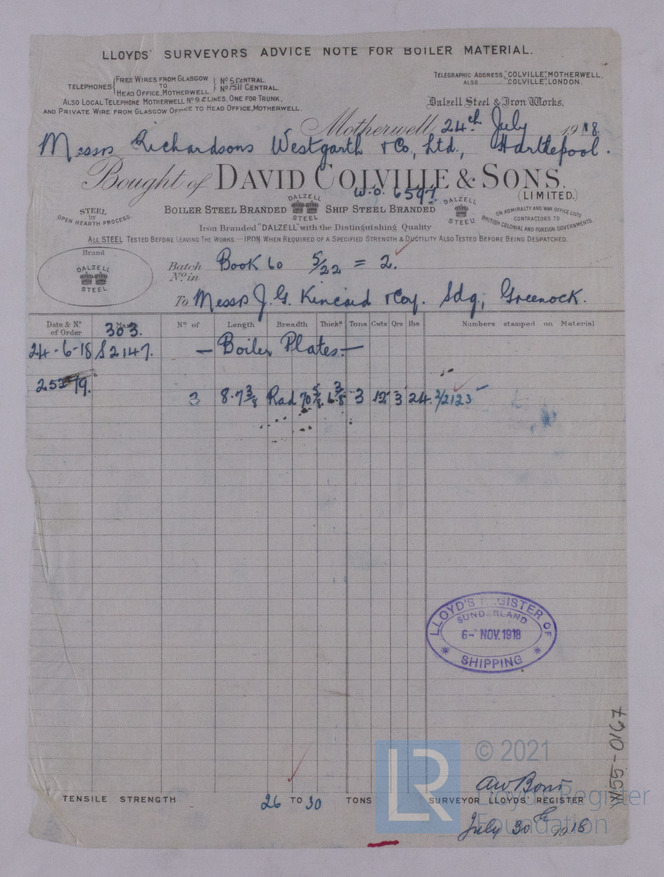 LLOYDS' SURVEYORS ADVICE NOTE FOR BOILER MATERIAL.
TELEPHONES { FREE WIRES FROM GLASGOW TO HEAD OFFICE, MOTHERWELL } No 5 CENTRAL. No 7511 CENTRAL.
ALSO LOCAL TELEPHONE MOTHERWELL No 9 2 LINES, ONE FOR TRUNK,
AND PRIVATE WIRE FROM GLASGOW OFFICE TO HEAD OFFICE, MOTHERWELL.
TELEGRAPHIC ADDRESS, "COLVILLE", MOTHERWELL.
ALSO "COLVILLE", LONDON.
Dalzell Steel & Iron Works,
Motherwell, 24th July 1918.
Messrs Richardsons Westgarth & Co, Ltd., Hartlepool.
Bought of DAVID COLVILLE & SONS. (LIMITED.)
W.O. 6597
STEEL BY OPEN HEARTH PROCESS.
BOILER STEEL BRANDED DALZELL STEEL SHIP STEEL BRANDED DALZELL STEEL
ON ADMIRALTY AND WAR OFFICE LISTS CONTRACTORS TO BRITISH COLONIAL AND FOREIGN GOVERNMENTS.
Iron Branded "DALZELL" with the Distinguishing Quality
ALL STEEL TESTED BEFORE LEAVING THE WORKS - IRON WHEN REQUIRED OF A SPECIFIED STRENGTH & DUCTILITY ALSO TESTED BEFORE BEING DESPATCHED.
Brand
DALZELL STEEL
Batch No. in Book 60 5/22 = 2.
To Messrs J. G. Kincaid & Coy. Sdg, Greenock.
Date & No of Order 303. No of Length Breadth Thicks Tons Cwts Qrs lbs Numbers stamped on Material
24-6-18 S2147. — Boiler Plates —
3 8·7 3/8 Rad 70 5/8 3 12 3 24. 3/2123
LLOYD'S REGISTER OF SHIPPING
SUNDERLAND
6- NOV. 1918
TENSILE STRENGTH 26 TO 30 TONS
SURVEYOR LLOYDS' REGISTER
July 30th 1918
W55-0167
LR
© 2021
Lloyd's Register
Foundation